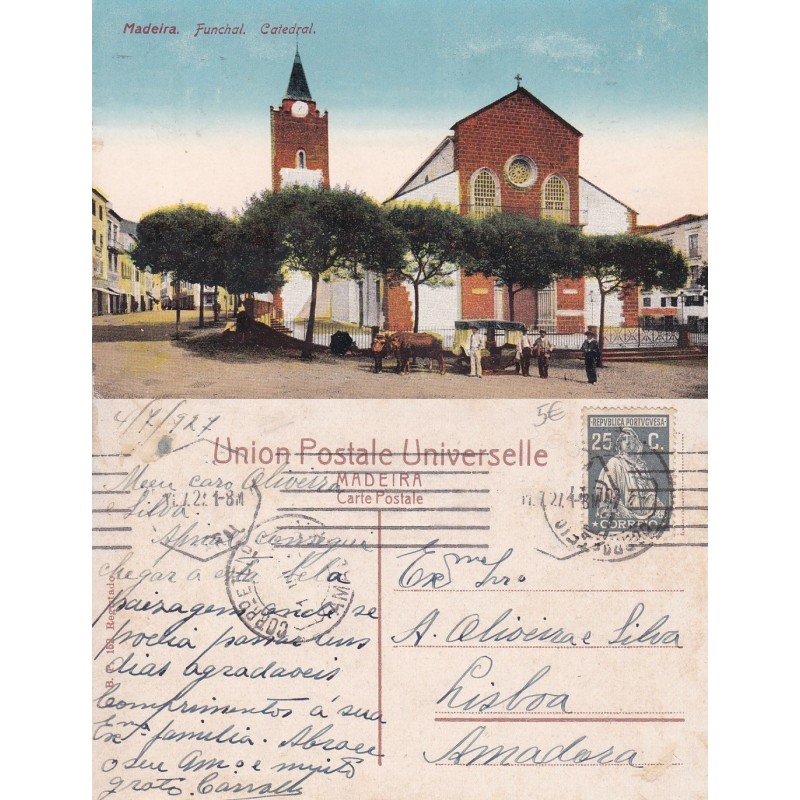 Madeira. Funchal. Catedral.
4/7/927
5€
Union Postale Universelle
MADEIRA
Carte Postale
REPUBLICA PORTUGUESA
25 C.
CORREIO
Meu caro Oliveira
e Silva
Afinal consegui
chegar a esta bela
paizagem onde se
podia passar uns
dias agradaveis
Comprimentos á sua
Exma familia. Abrace
o seu amo e muito
grato.
B. P. 153 Registado
Exmo Snr.
A. Oliveira e Silva
Lisboa
Amadora